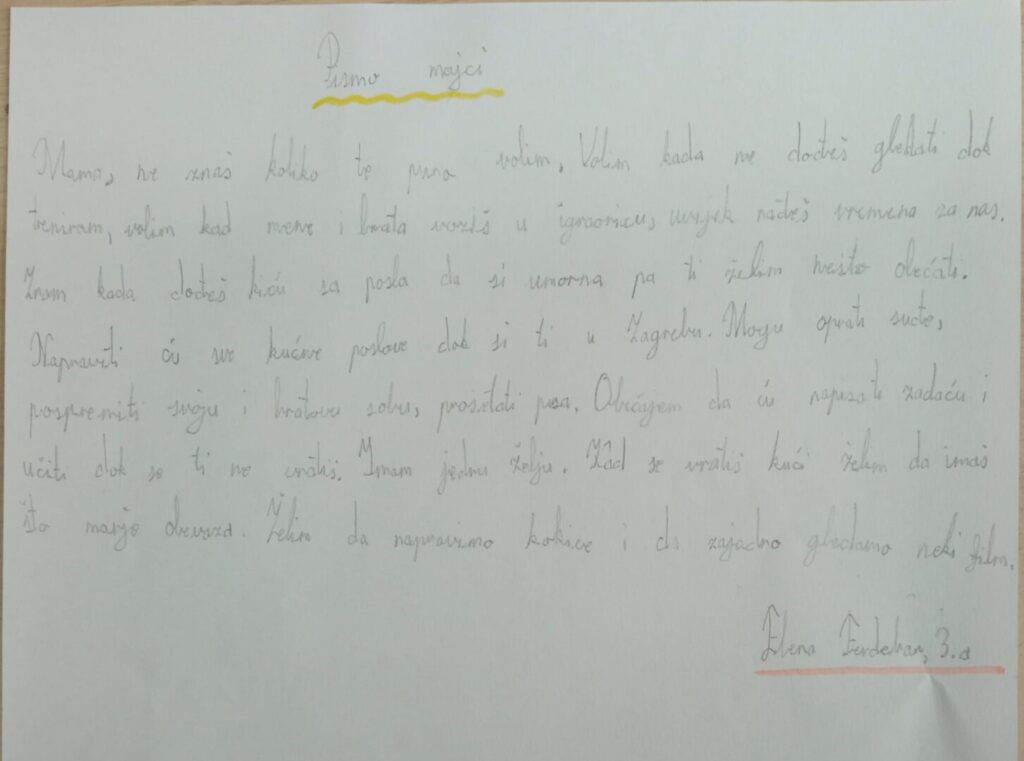 Pismo majci
Mama, ne znaš koliko te puno volim. Volim kada me dođeš gledati dok
treniram, volim kad mene i brata voziš u igraonicu, uvijek nađeš vremena za nas.
Znam kada dođeš kući sa posla da si umorna pa ti želim nešto obećati.
Napraviti ću sve kućne poslove dok si ti u Zagrebu. Mogu oprati suđe,
pospremiti svoju i bratovu sobu, prošetati psa. Obećajem da ću napisati zadaću i
učiti dok se ti ne vratiš. Imam jednu želju. Kad se vratiš kući želim da imaš
što manje obaveza. Želim da napravimo kokice i da zajedno gledamo neki film.
Elena 3.a